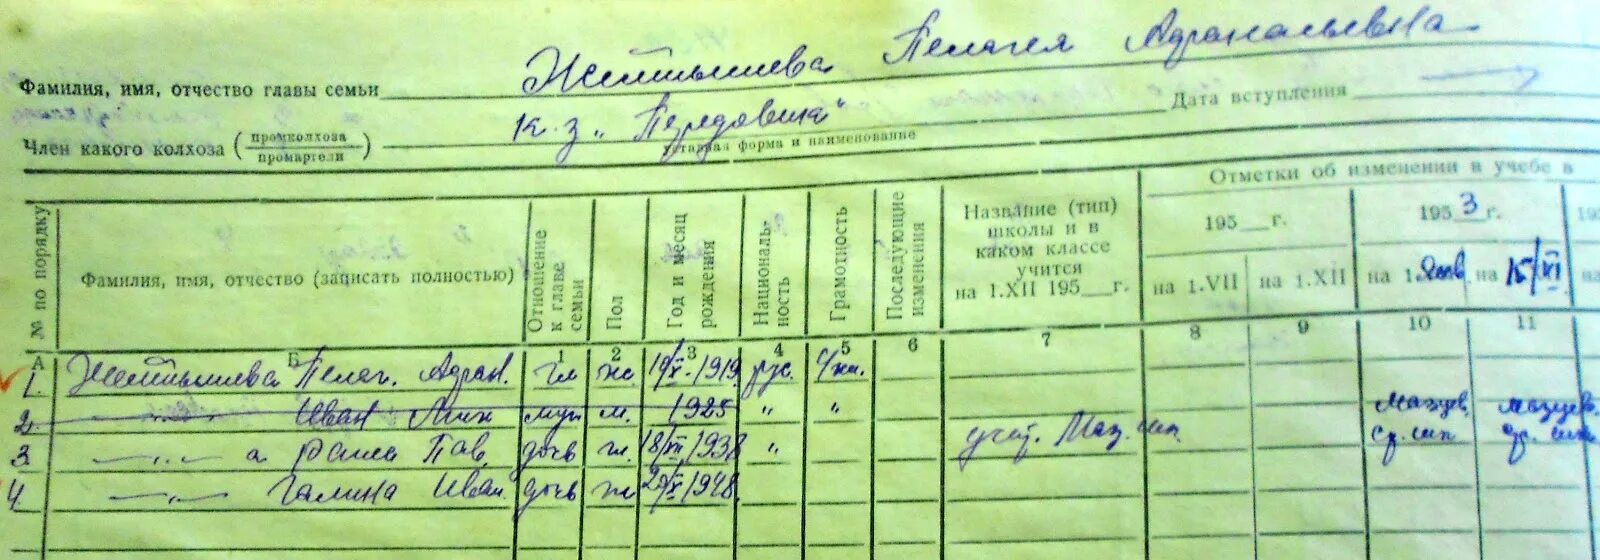 Фамилия, имя, отчество главы семьи Желтышева Пелагея Адриановна
Член какого колхоза (промколхоза / промартели) К-з „Передовик“ Дата вступления
уставная форма и наименование
№ по порядку
Фамилия, имя, отчество (записать полностью)
Отношение к главе семьи
Пол
Год и месяц рождения
Национальность
Грамотность
Последующие изменения
Название (тип) школы и в каком классе учится на 1.XII 195 г.
Отметки об изменении в учебе в
195 г. 1953 г.
на 1.VII на 1.XII на 1.Янв на 15/VI на
А Б 1 2 3 4 5 6 7 8 9 10 11
1. Пелаг. Адриан. гл жс. 19/V-1919 рус.
2. —„— Иван муж м. 1925 „ „
3. —„— а Раиса Пав. дочь ж. 18/XII 1938 „ учит. Маз. шк. ср. шк ср. шк
4. —„— Галина Иван. дочь ж 1948